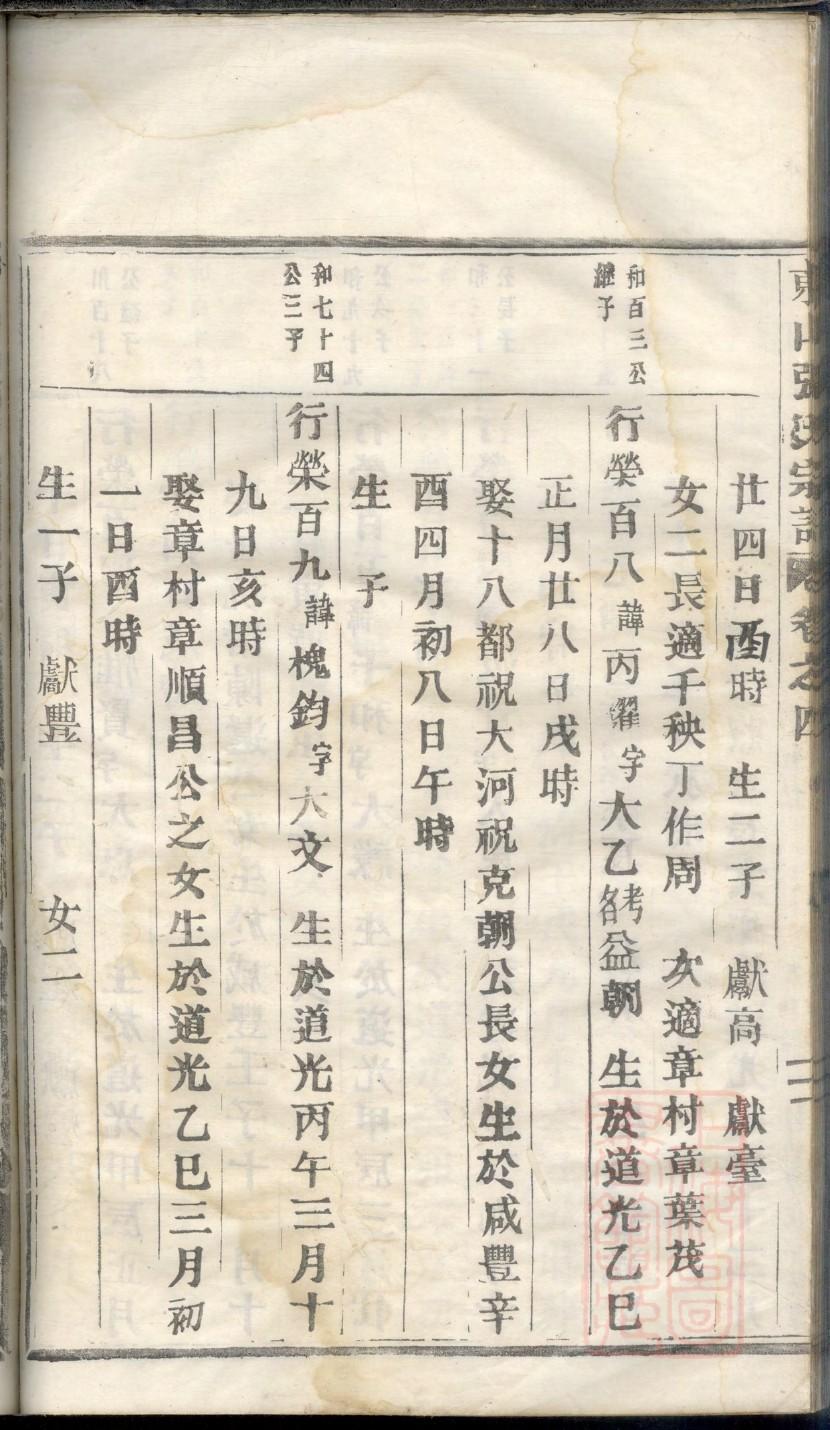 東山張氏宗譜卷之四
廿四日酉時 生二子 獻高 獻臺
女二長適千秧丁作周 次適章村章葉茂
和百三公
繼子
行榮百八諱丙燿字大乙考名益朝 生於道光乙巳
正月廿八日戌時
娶十八都祝大河祝克朝公長女生於咸豐辛
酉四月初八日午時
生 子
和七十四
公三子
行榮百九諱槐鈞字大文 生於道光丙午三月十
九日亥時
娶章村章順昌公之女生於道光乙巳三月初
一日酉時
生一子 獻豐 女二